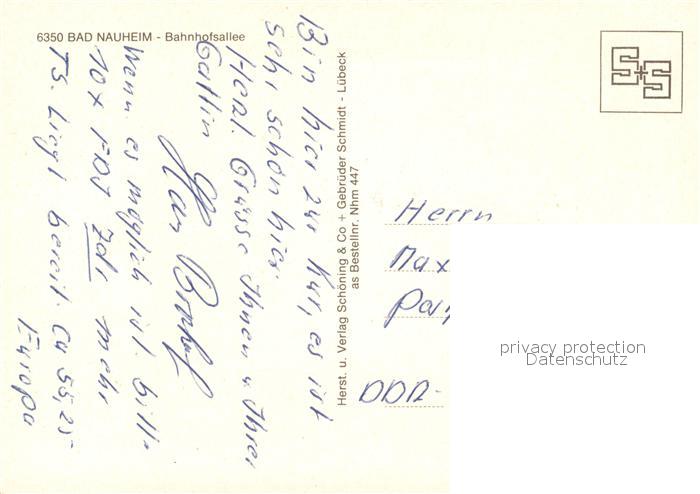 6350 BAD NAUHEIM - Bahnhofsallee
Bin hier zur Kur, es ist
sehr schön hier.
Herzl. Grüsse Ihnen u. Ihrer
Gattin
Wenn es möglich ist. bitte
10 x FDJ Zdr mehr
TS. liegt bereit. Cu 55,25
Europa
Herst. u. Verlag Schöning & Co + Gebrüder Schmidt - Lübeck
as Bestellnr. Nhm 447
S+S
Herrn
Max
DDR-
privacy protection
Datenschutz